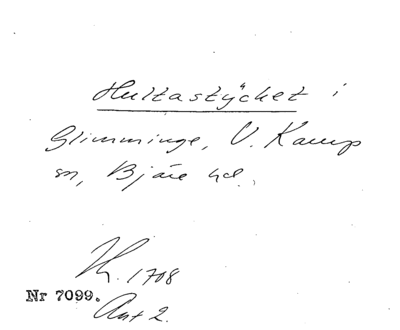 Hultastÿcket i
Glimminge, V. Karup
sn, Bjäre hd.
Kh. 1708
Nr 7099.
Ant 2.